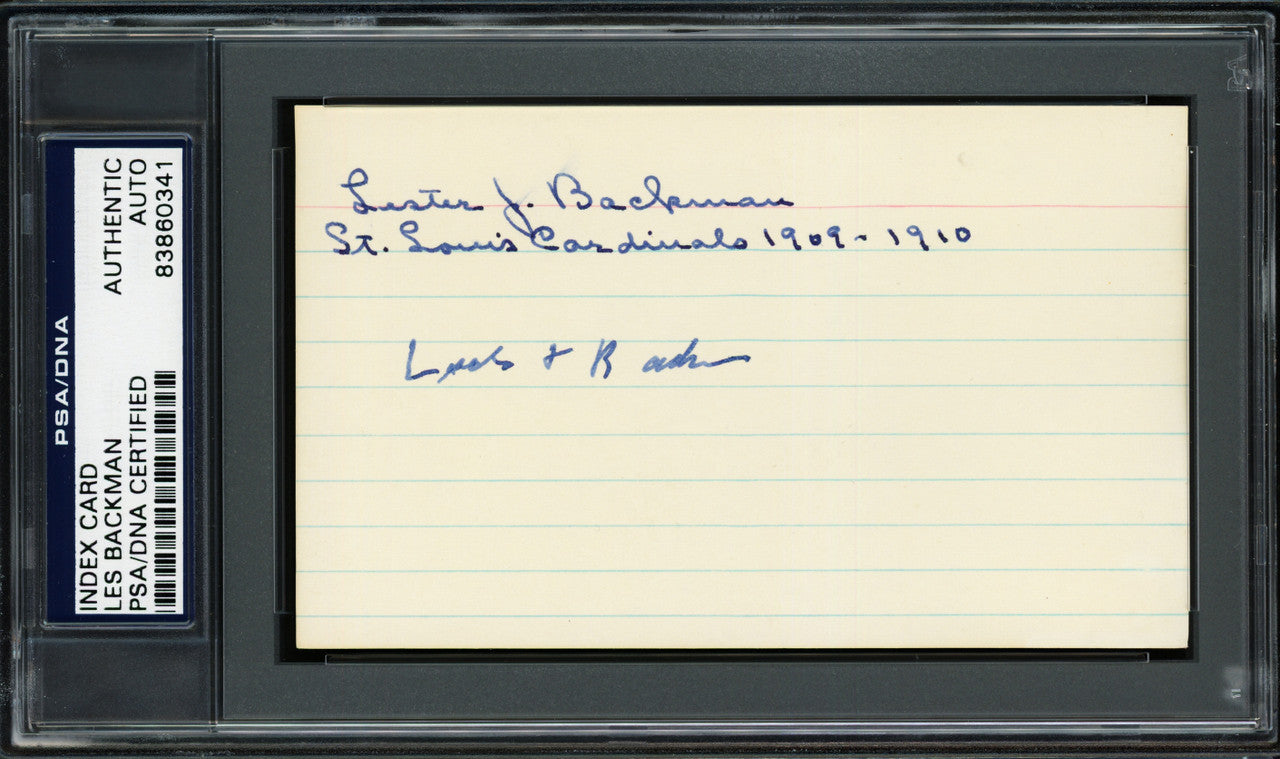 PSA/DNA
INDEX CARD
LES BACKMAN
PSA/DNA CERTIFIED
AUTHENTIC
AUTO
83860341
Lester J. Backman
St. Louis Cardinals 1909-1910